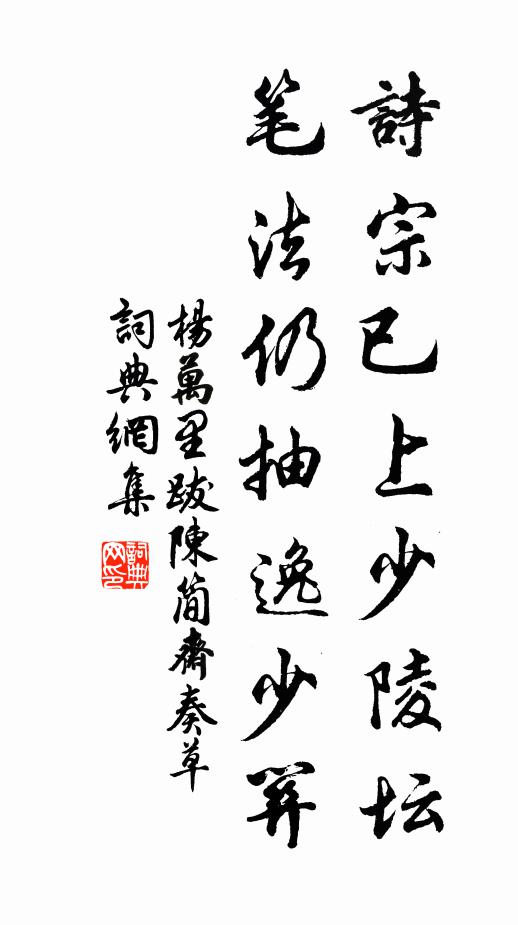 詩宗已上少陵坛
笔法仍抽逸少關
楊萬里跋陳簡齋奏草
詞典網集
詞典网印